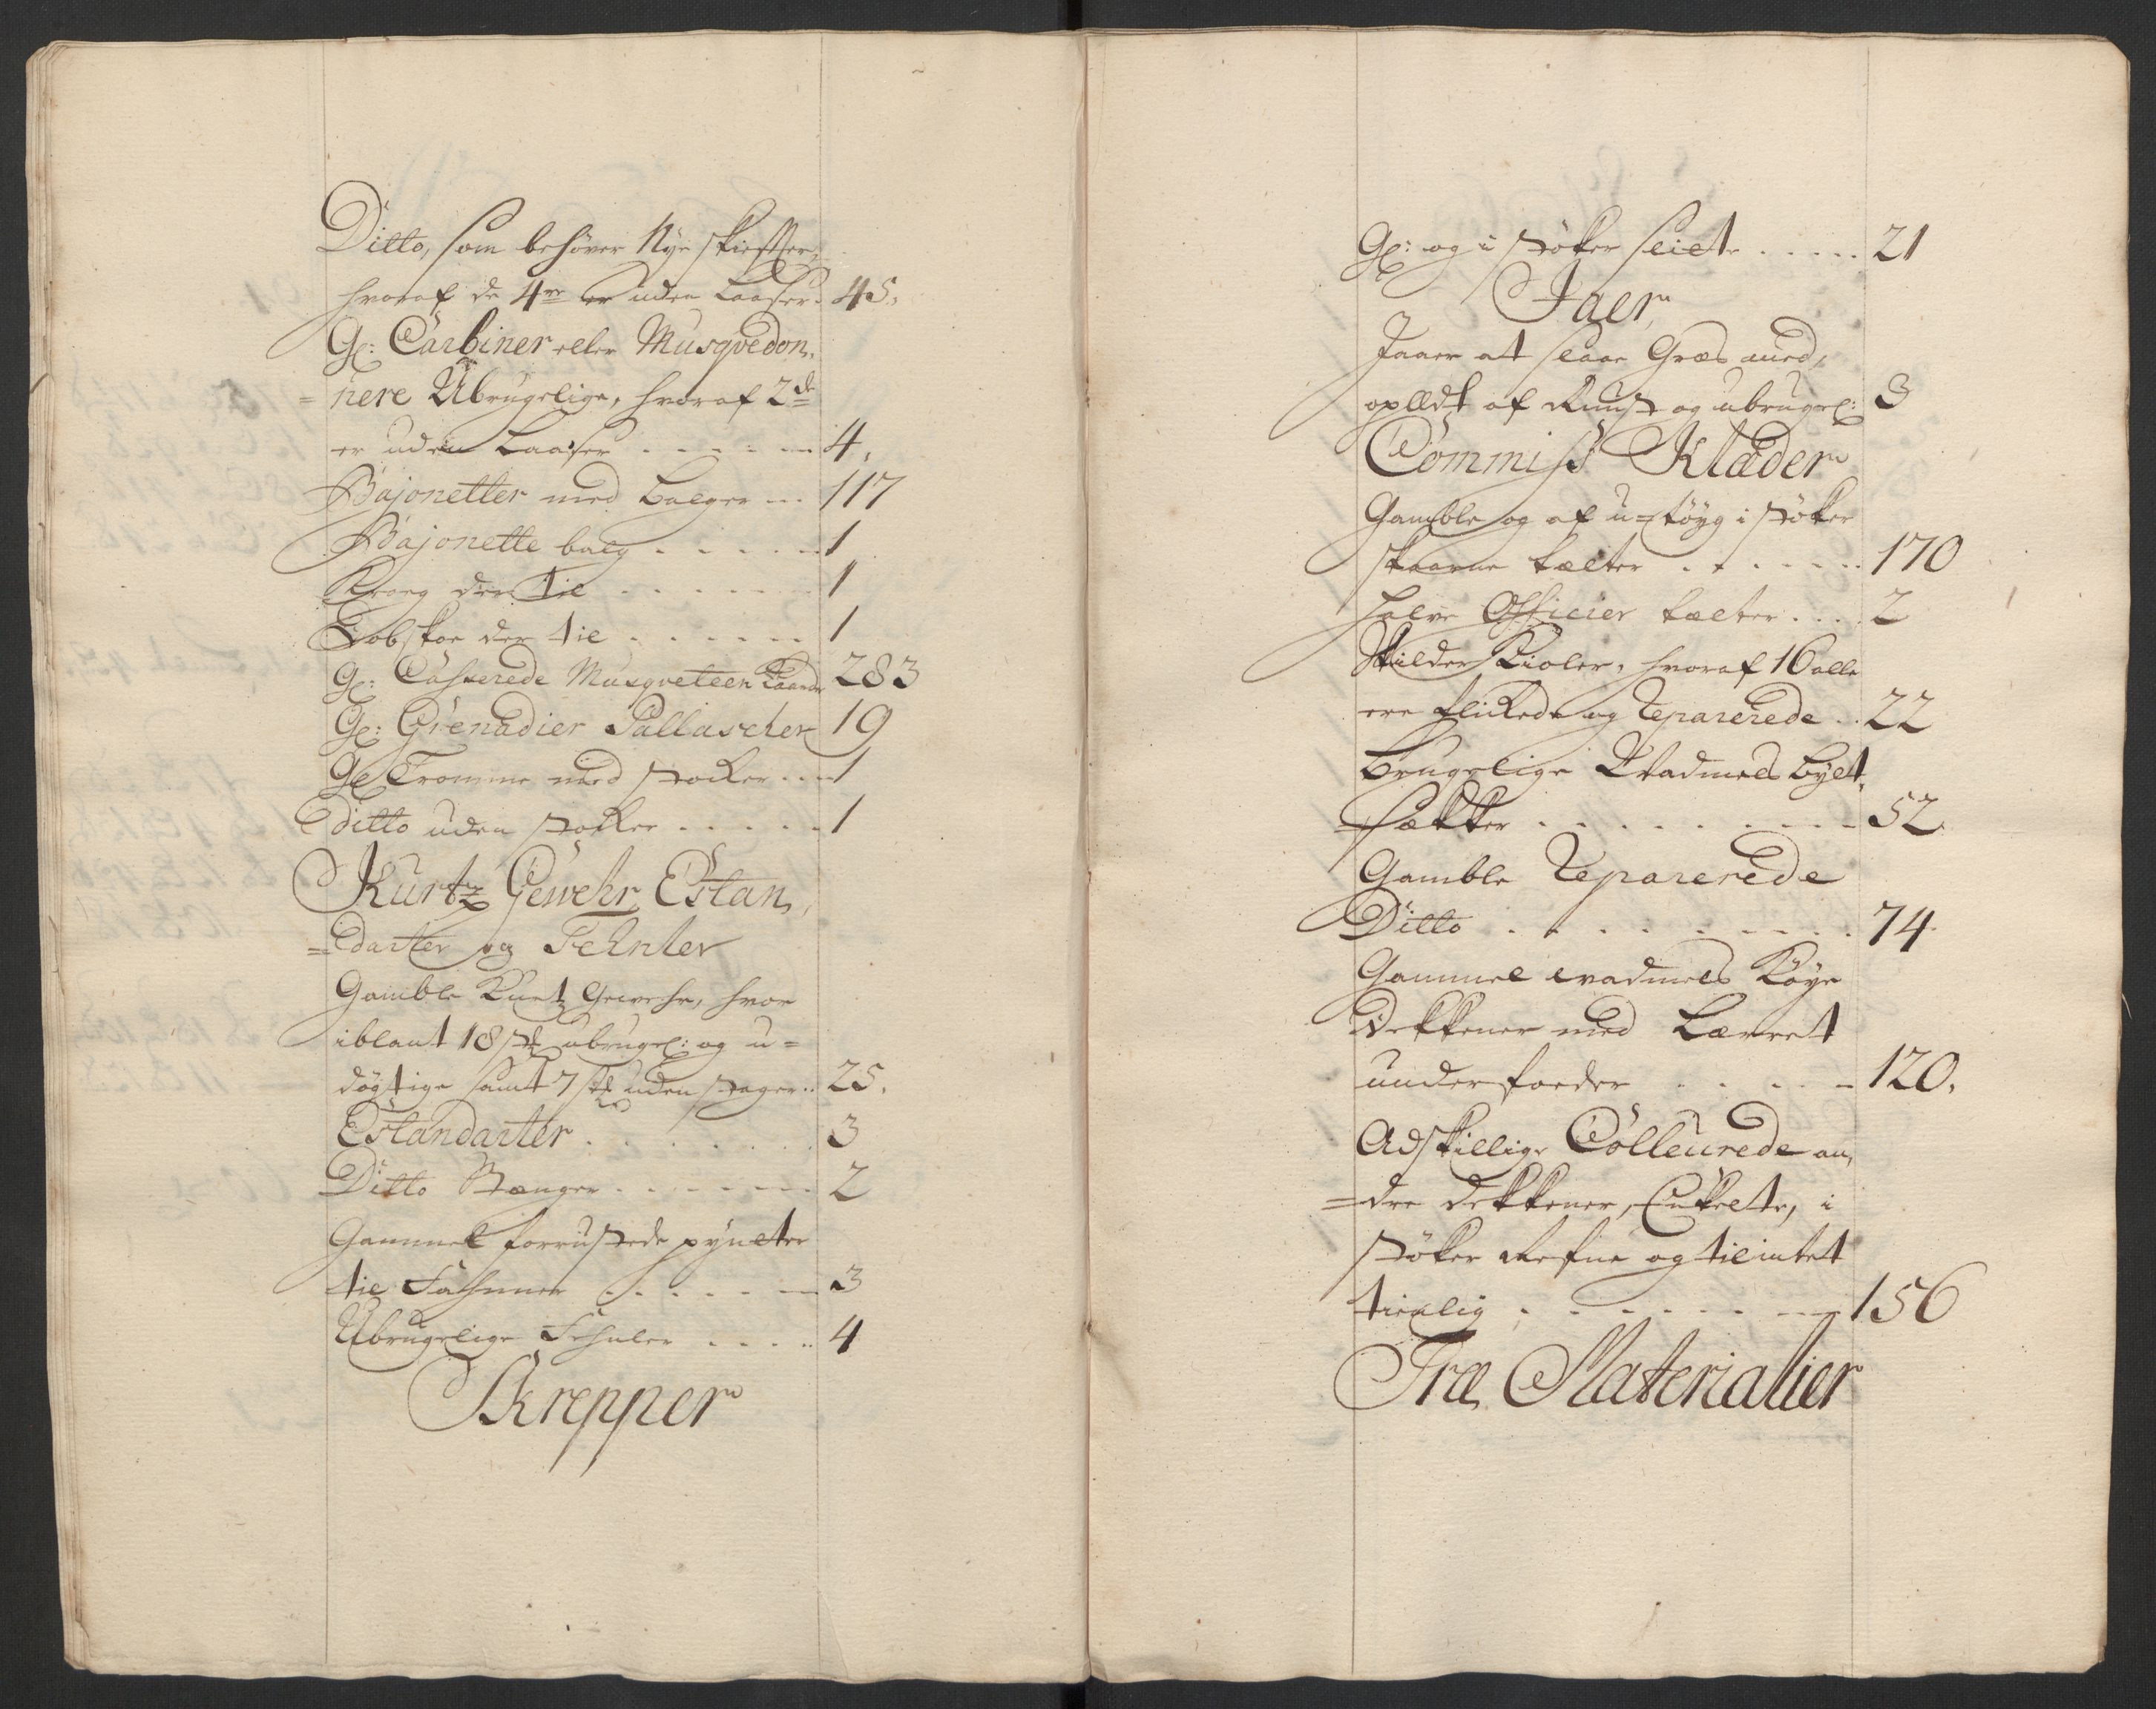 Ditto, som behöver Nye skiefter,
hvoraf de 4re er uden Laaser. 45.
Gl: Carbiner eller Musqvedon,
=nere Ubrugelige, hvoraf 2de
er uden Laaser . . . . . 4.
Bajonetter med Balger . . . 117
Bajonette balg . . . . . 1
Krog der til . . . . . . 1
Dobskoe der til . . . . . . 1
Gl: Casserede Musqveteer Kaarder 283
Gl: Grenadier Pallascher 19
Gl Tromme med stocker . . . 1
Ditto uden stocker . . . . . 1
Kurtz Gewehr, Estan,
=darter og Fehnler
Gamble Kurtz Gewehr, hvor
iblant 18 stk ubrugel: og u=
dögtige samt 7 stk uden stager . . 25.
Estandarter . . . . . . 3
Ditto Stænger . . . . . . 2
Gammel forrustede pynter
til Fahnner . . . . . . 3
Ubrugelige Fehnler . . . . 4
Skrepper
Gl: og i støker slet . . . . . 21
Jaer
Jaaer at slaae Græs med,
oplidt af Rust og ubrugel: 3
Commiss Klæder
Gamble og af u=töyg i støker
skaarne tælter . . . . . . 170
halve Officier tælter . . . . 2
Skilder Kioler, hvoraf 16 alle
ere flikede og Reparerede . . 22
Brugelige Wadmels Bylt,
=sækker . . . . . . . . 52
Gamble Reparerede
Ditto . . . . . . . . 74
Gammel wadmels Köye
Dekkener med Lærret
underfoeder . . . . . 120.
Adskillige Colleurede an,
=dre dekkener, Enkelte, i
støker Refne og til intet
tienlig . . . . . . . 156
Træ Materialier